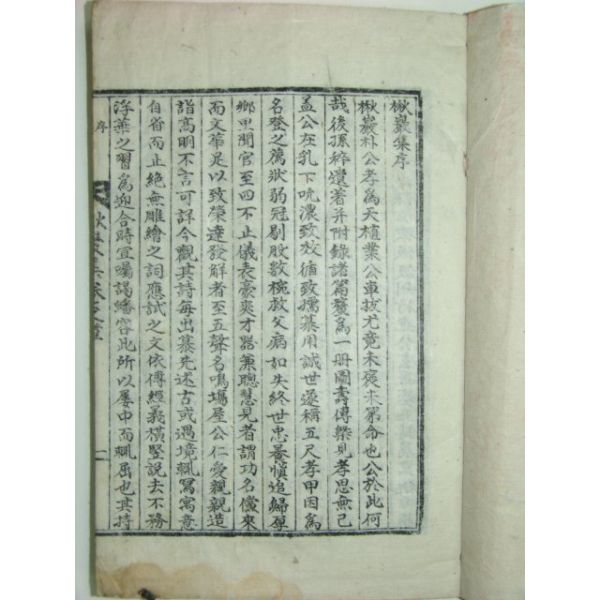 楸巖集序
楸巖朴公孝爲天植業公車拔尤竟未褎未第命也公於此何
哉後孫稡遺著并附錄諸篇釐爲一冊圖壽傳梁見孝思無已
孟公在乳下吮濃致效循致孺慕用誠世遂稱五尺孝甲因爲
名登之薦狀弱冠剔股數椀救父病如失終世忠養愼追歸厚
鄉里聞官至四不止儀表豪爽才器兼聰慧見者謂功名儻來
而文華足以致榮達發解者至五聲名鳴場屋公仁愛親親造
詣高明不言可詳今觀其詩每出慕先述古或遇境輒冩寓意
自省而止絶無雕繪之詞應試之文依傅經義橫竪說去不務
浮華之習爲迎合時宜囑謁蟠容此所以屢中而輒屈也其持
序
一